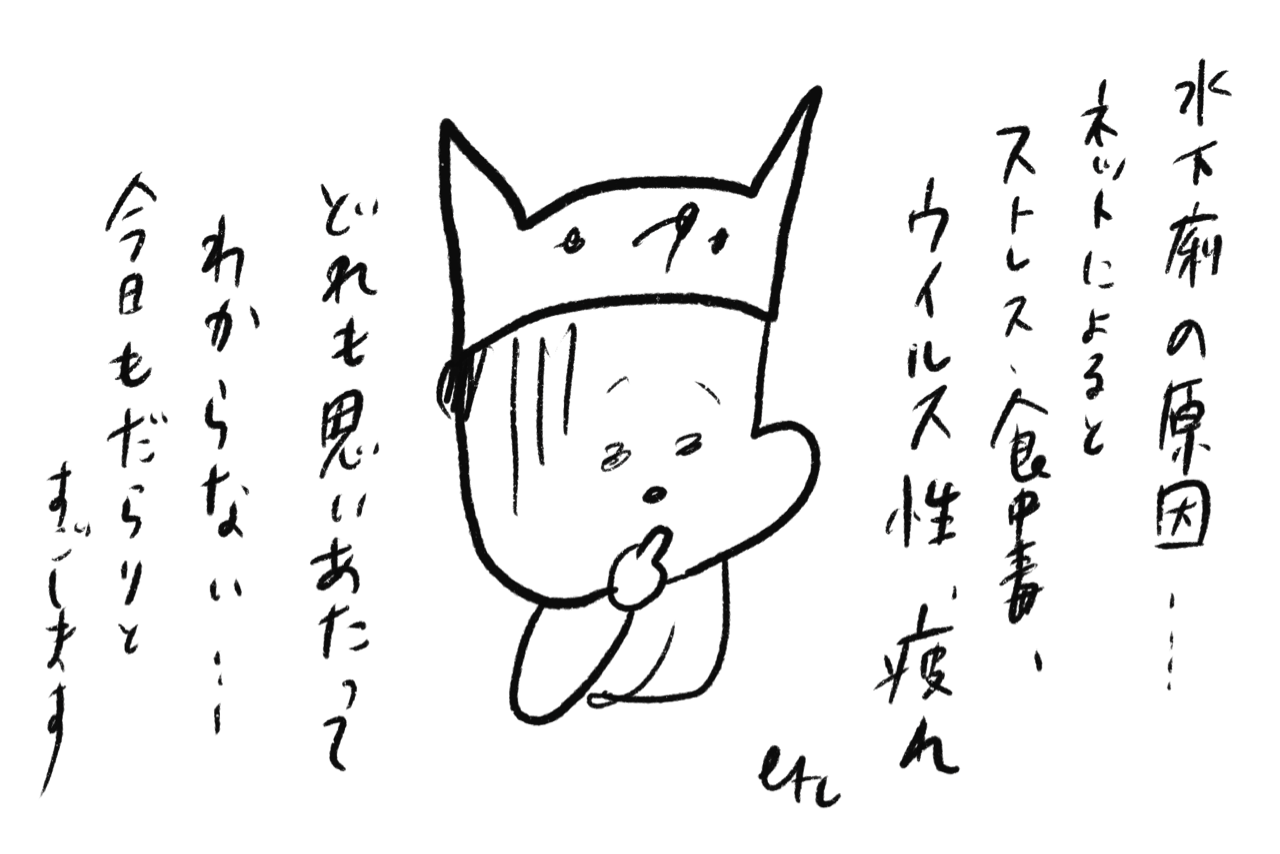 水下痢の原因…
ネットによると
ストレス、食中毒、
ウイルス性、疲れ
etc
どれも思いあたって
わからない…
今日もだらりと
すごします